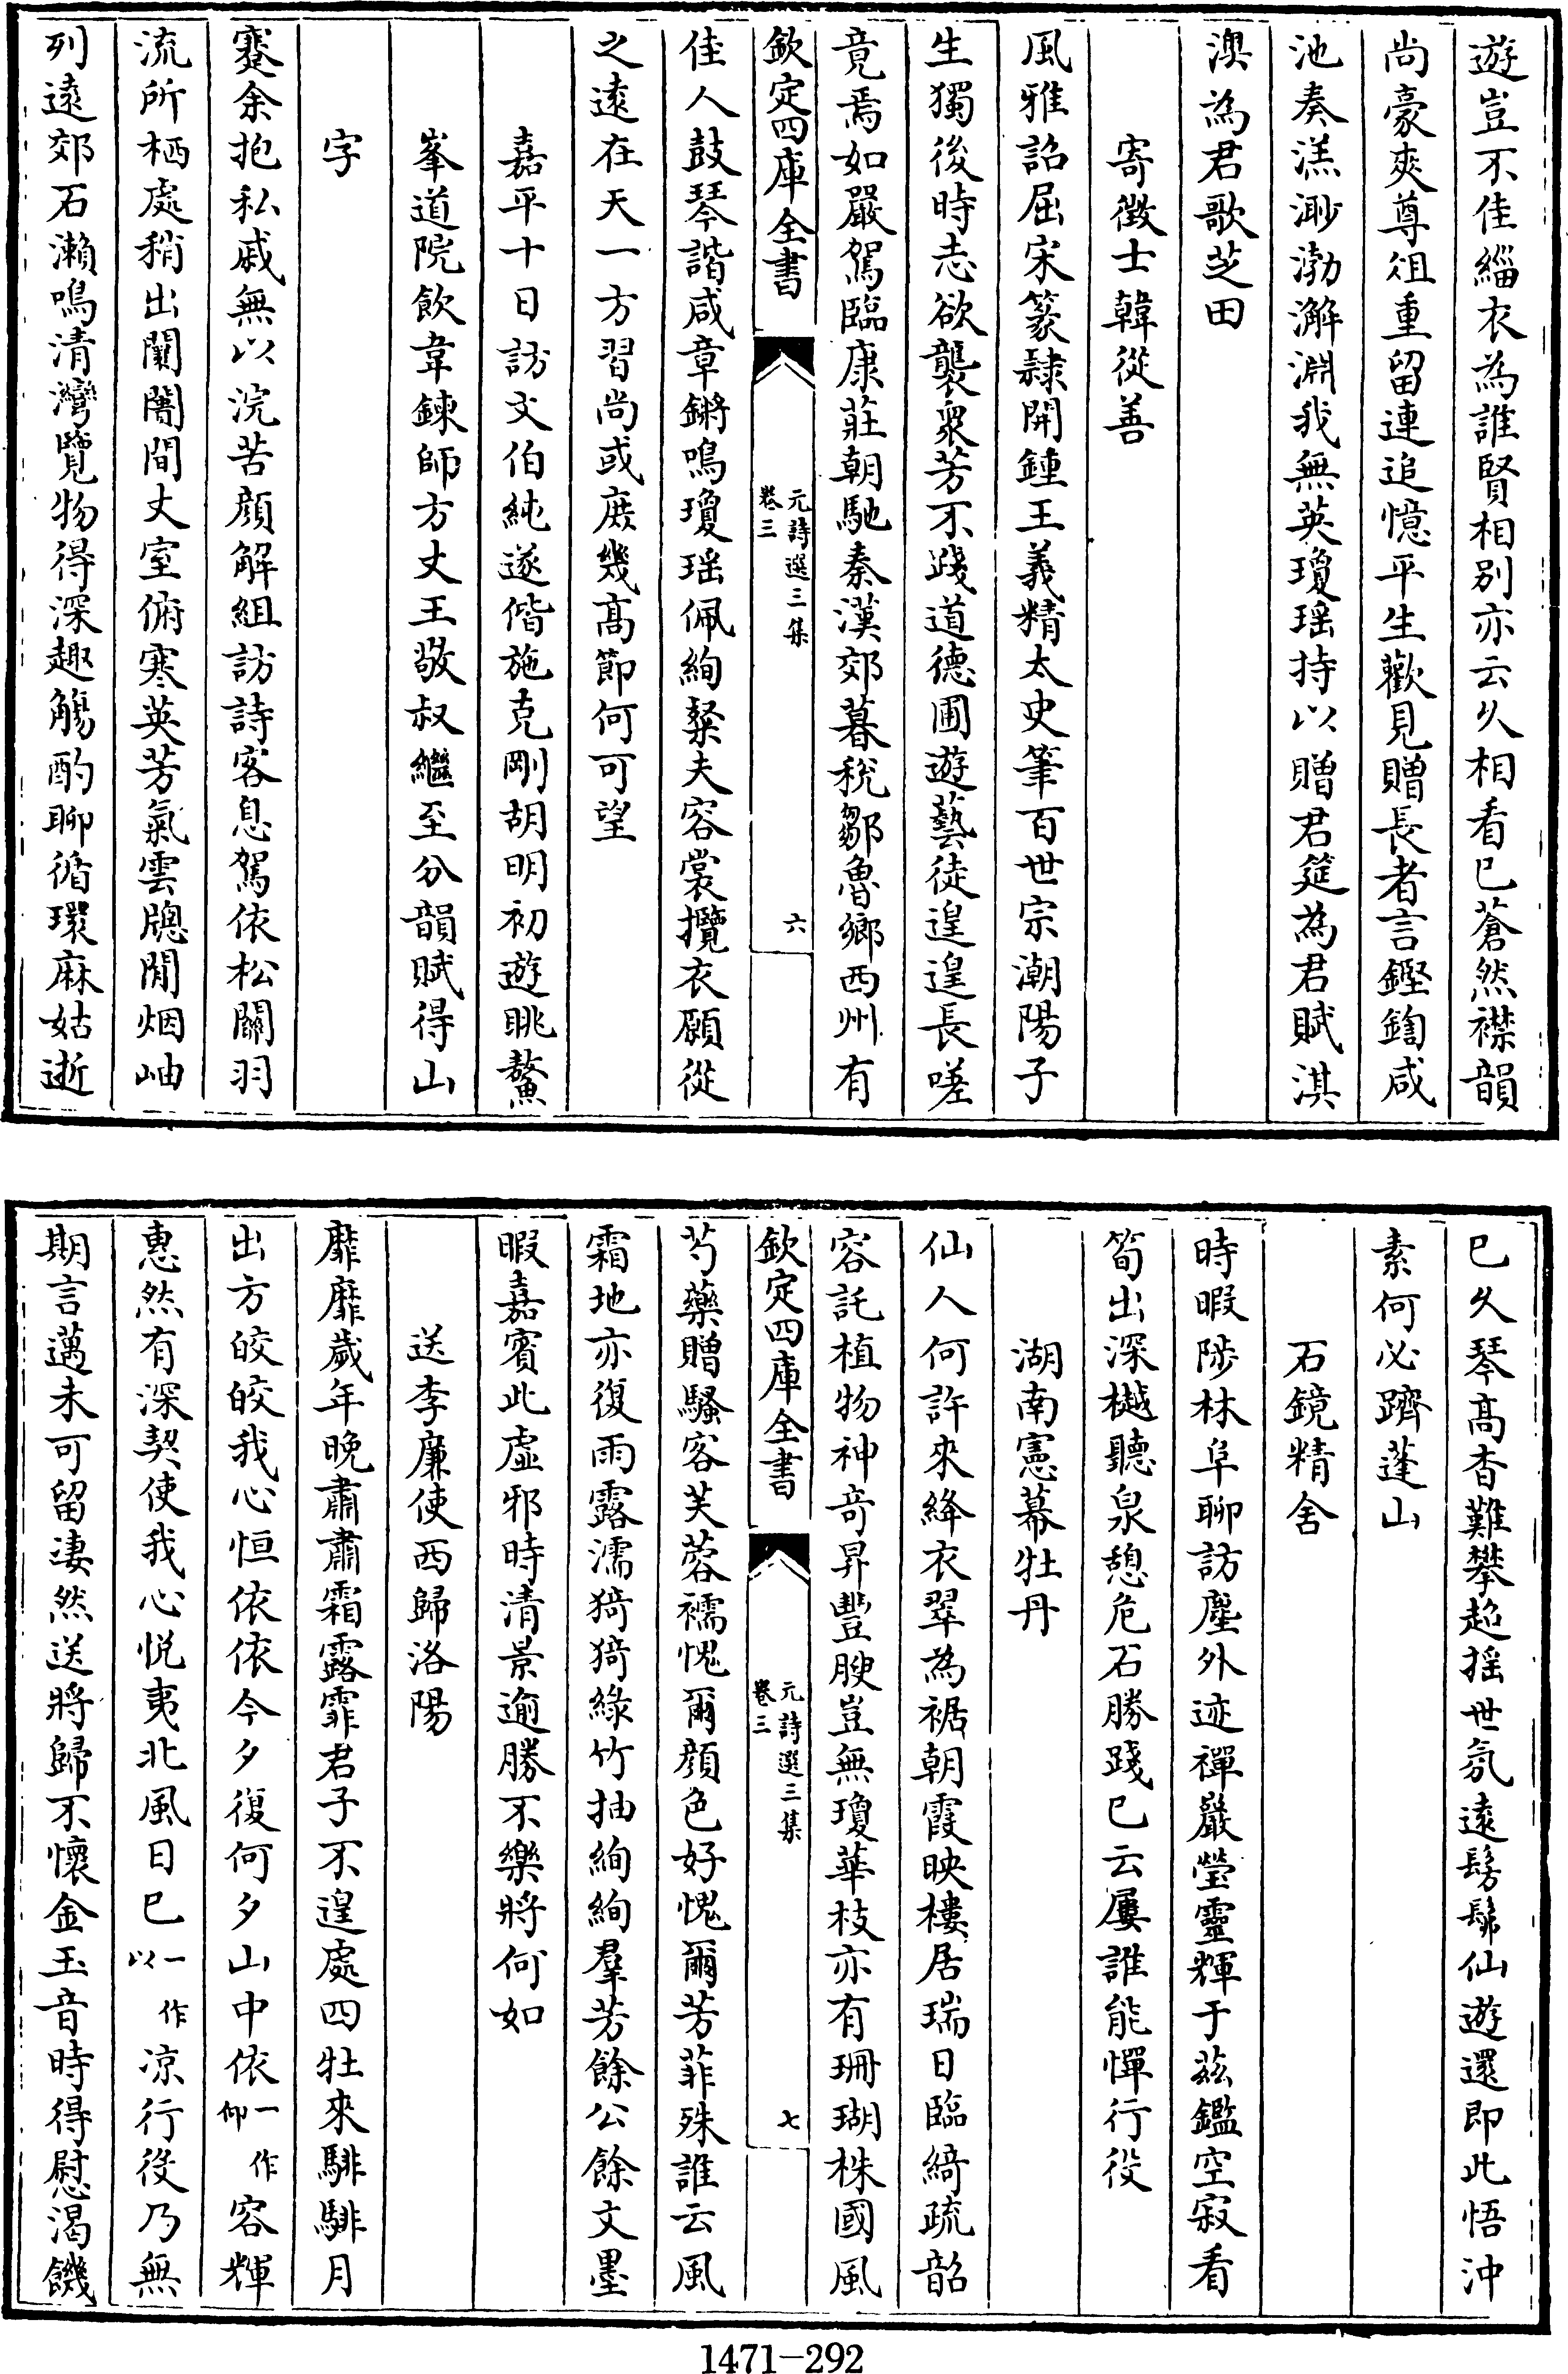 遊豈不佳緇衣為誰賢相別亦云久相看已蒼然襟韻
尚豪爽尊俎重留連追憶平生歡見贈長者言鏗鍧咸
池奏渼渺渤澥淵我無英瓊瑶持以贈君筵為君賦淇
澳為君歌芝田
寄徵士韓從善
風雅詔屈宋篆隷開鍾王義精太史筆百世宗潮陽子
生獨後時志欲襲衆芳不踐道德圃遊藝徒遑遑長嗟
竟焉如嚴駕臨康莊朝馳秦漢郊暮稅鄒魯鄉西州有
欽定四庫全書
元詩選三集
卷三
六
佳人鼓琴諧咸章鏘鳴瓊瑶佩絢粲夫容裳攬衣願從
之遠在天一方習尚或庶幾髙節何可望
嘉平十日訪文伯純遂偕施克剛胡明初遊眺鰲
峯道院飲韋鍊師方丈王敬叔繼至分韻賦得山
字
蹇余抱私戚無以浣苦顔解組訪詩客息駕依松關羽
流所栖處稍出闤闠間丈室俯寒英芳氣雲牕閒烟岫
列遠郊石瀨鳴清灣覽物得深趣觴酌聊循環麻姑逝
已久琴髙杳難攀超揺世氛遠髣髴仙遊還即此悟沖
素何必躋蓬山
石鏡精舍
時暇陟林阜聊訪塵外迹禪巖瑩靈輝于兹鑑空寂看
筍出深樾聽泉憩危石勝踐已云屢誰能憚行役
湖南憲幕牡丹
仙人何許來絳衣翠為裾朝霞映樓居瑞日臨綺疏韶
容託植物神奇昇豐腴豈無瓊華枝亦有珊瑚株國風
欽定四庫全書
元詩選三集
卷三
七
芍藥贈騷客芙蓉襦愧爾顔色好愧爾芳菲殊誰云風
霜地亦復雨露濡猗猗綠竹抽絢絢羣芳餘公餘文墨
暇嘉賓此虛邪時清景逾勝不樂將何如
送李廉使西歸洛陽
靡靡歲年晚肅肅霜露霏君子不遑處四牡來騑騑月
出方皎皎我心恒依依今夕復何夕山中依一作仰容輝
惠然有深契使我心悦夷北風日已一作以凉行後乃無
期言邁未可留淒然送將歸不懷金玉音時得慰渴饑
1471-292